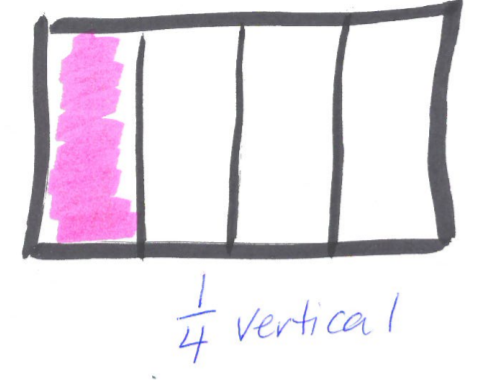 1/4 vertical